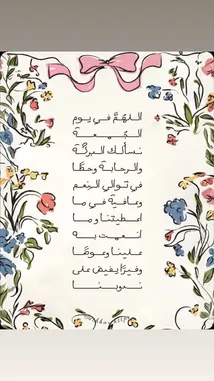 اللهمَّ في يوم
الجمعة
نسألك البركة
والرحابة وحظًا
في توالي النِعم
وعافية في ما
اعطيتنا و ما
انعمت به
علينا وعوضًا
وفيرًا يفيض على